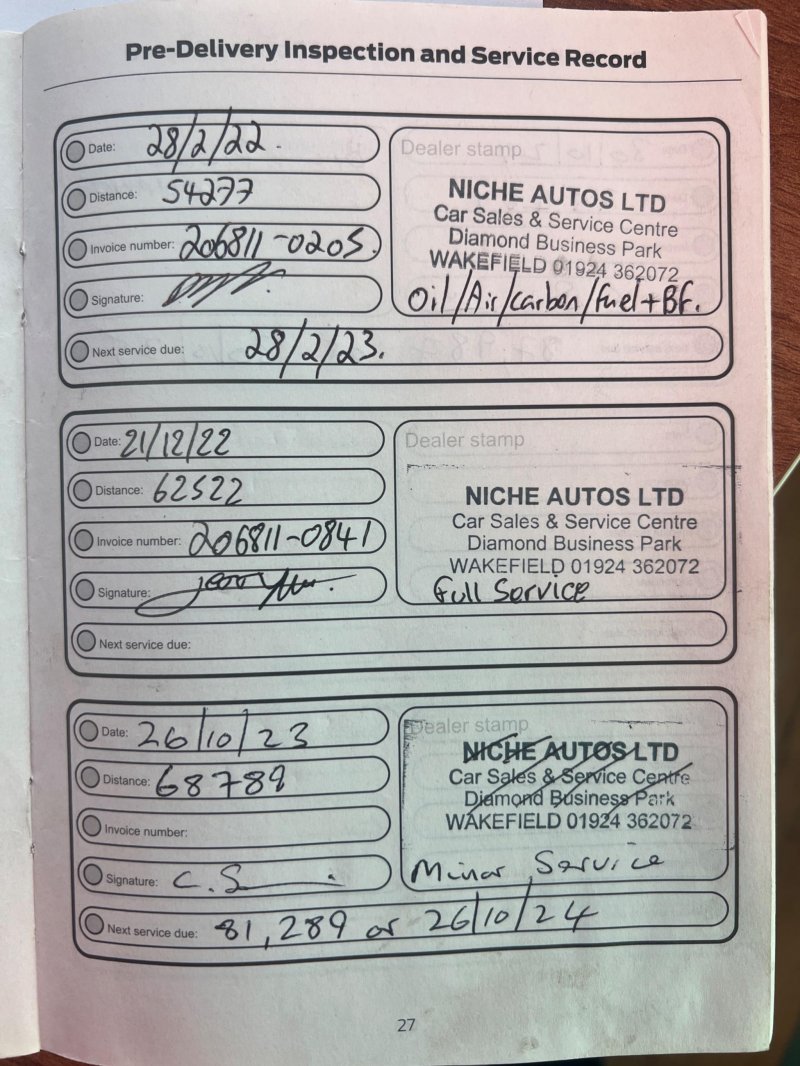 Pre-Delivery Inspection and Service Record
Date: 28/2/22.
Distance: 54277
Invoice number: 206811-0205.
Signature:
Next service due: 28/2/23.
Dealer stamp
NICHE AUTOS LTD
Car Sales & Service Centre
Diamond Business Park
WAKEFIELD 01924 362072
Oil/Air/carbon/fuel+BF.
Date: 21/12/22
Distance: 62522
Invoice number: 206811-0841
Signature:
Next service due:
Dealer stamp
NICHE AUTOS LTD
Car Sales & Service Centre
Diamond Business Park
WAKEFIELD 01924 362072
Full Service
Date: 26/10/23
Distance: 68789
Invoice number:
Signature: C.S
Next service due: 81,289 or 26/10/24
Dealer stamp
NICHE AUTOS LTD
Car Sales & Service Centre
Diamond Business Park
WAKEFIELD 01924 362072
Minor Service
27